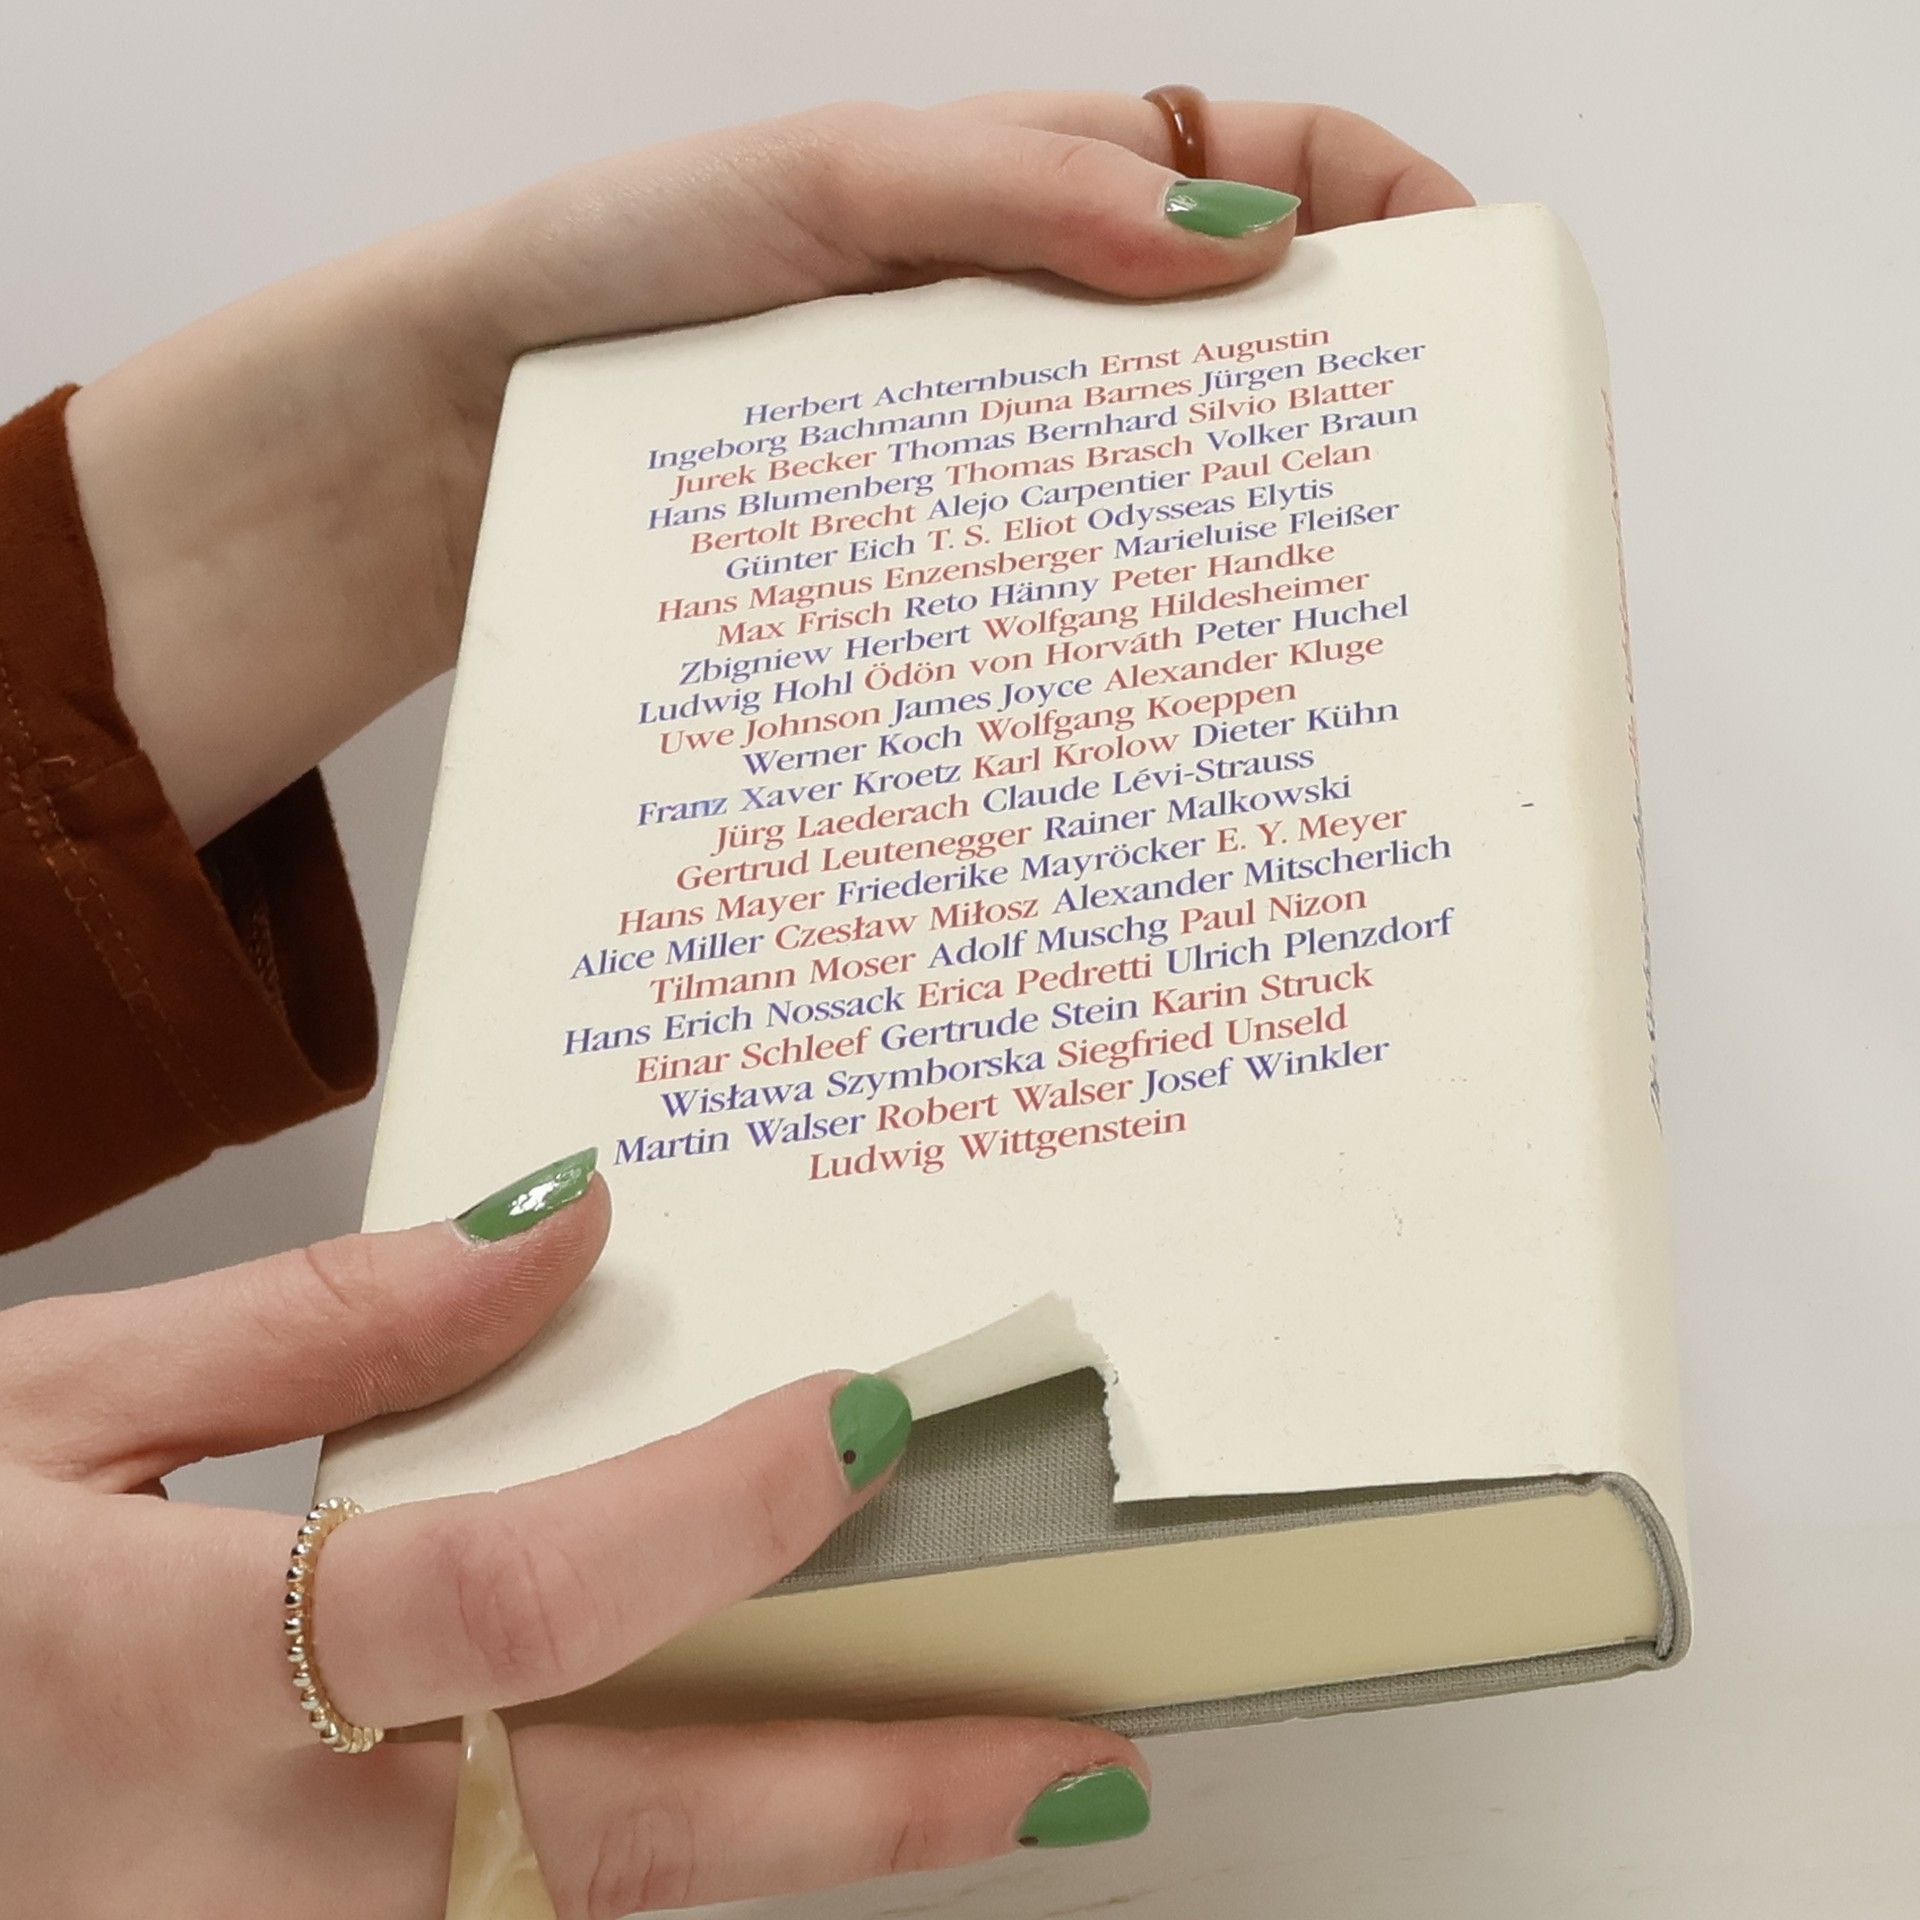 Herbert Achternbusch Ernst Augustin
Ingeborg Bachmann Djuna Barnes Jürgen Becker
Jurek Becker Thomas Bernhard Silvio Blatter
Hans Blumenberg Thomas Brasch Volker Braun
Bertolt Brecht Alejo Carpentier Paul Celan
Günter Eich T. S. Eliot Odysseas Elytis
Hans Magnus Enzensberger Marieluise Fleißer
Max Frisch Reto Hänny Peter Handke
Zbigniew Herbert Wolfgang Hildesheimer
Ludwig Hohl Ödön von Horváth Peter Huchel
Uwe Johnson James Joyce Alexander Kluge
Werner Koch Wolfgang Koeppen
Franz Xaver Kroetz Karl Krolow Dieter Kühn
Jürg Laederach Claude Lévi-Strauss
Gertrud Leutenegger Rainer Malkowski
Hans Mayer Friederike Mayröcker E. Y. Meyer
Alice Miller Czesław Miłosz Alexander Mitscherlich
Tilmann Moser Adolf Muschg Paul Nizon
Hans Erich Nossack Erica Pedretti Ulrich Plenzdorf
Einar Schleef Gertrude Stein Karin Struck
Wisława Szymborska Siegfried Unseld
Martin Walser Robert Walser Josef Winkler
Ludwig Wittgenstein